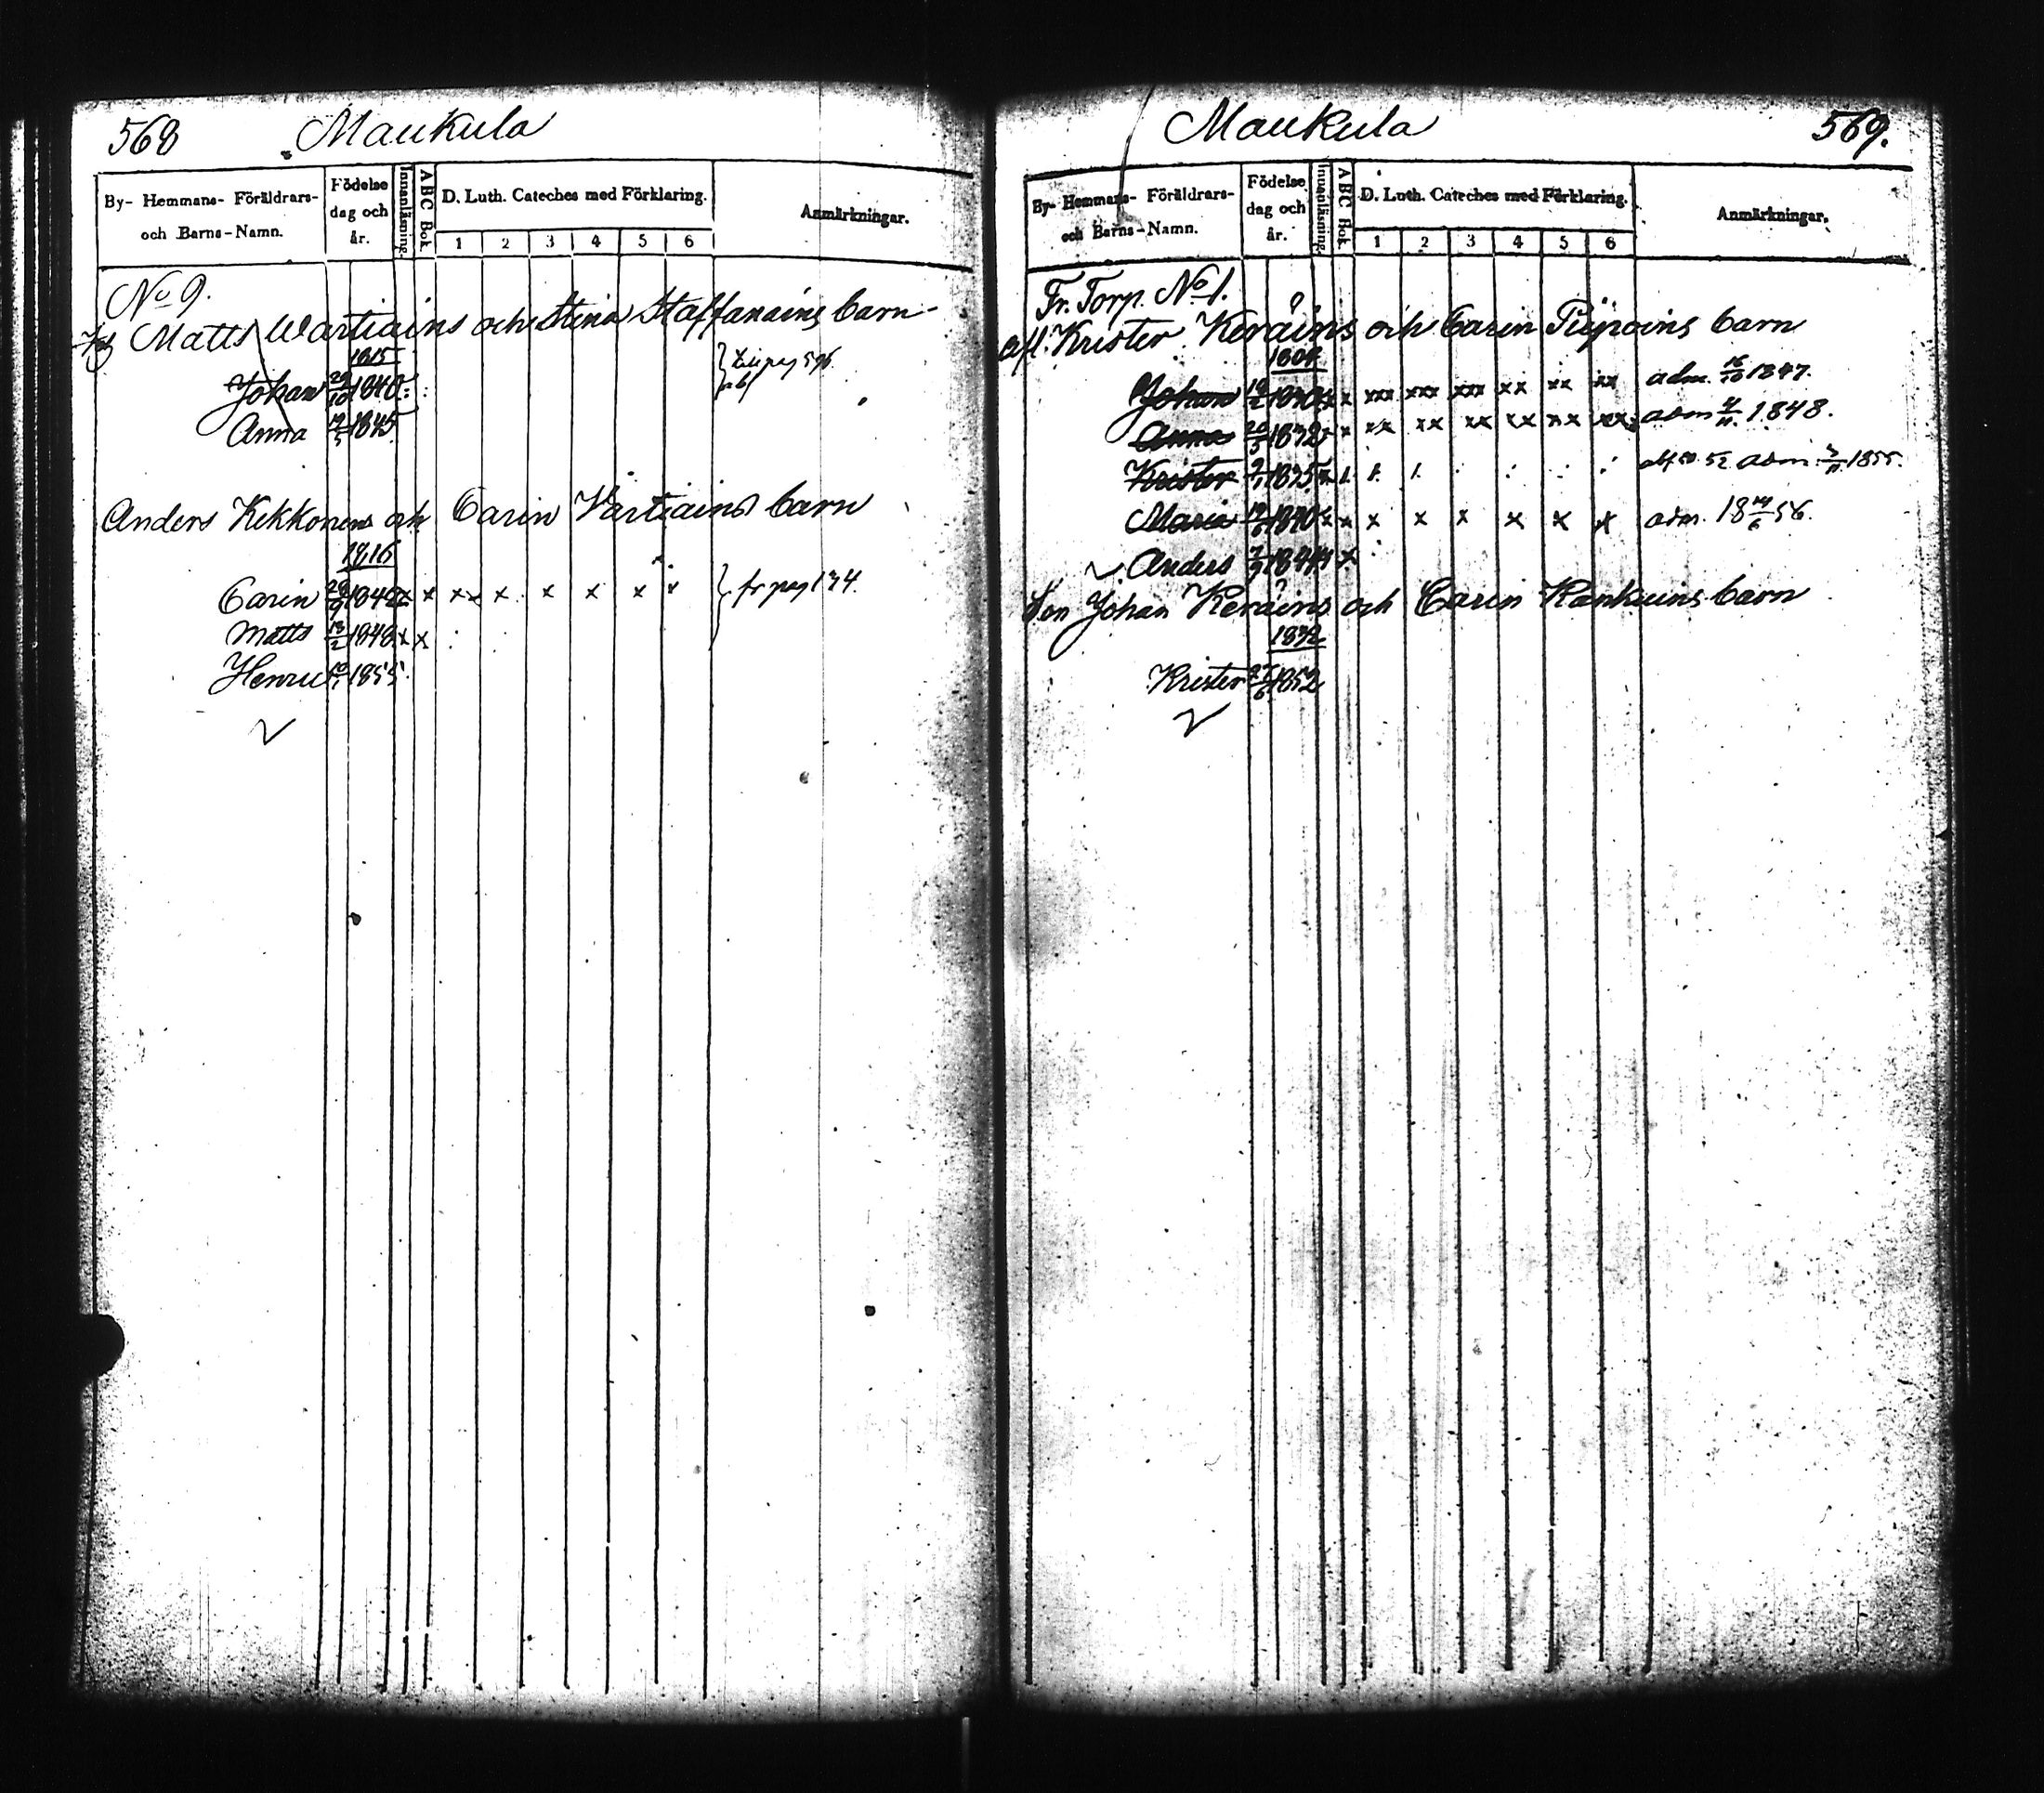 568 Maukula
By- Hemmans- Föräldrars- och Barns-Namn. Födelse dag och år. Innanläsning. A B C Bok. D. Luth. Cateches med Förklaring. 1 2 3 4 5 6 Anmärkningar.
No 9.
Matts Wartiains och Stina Staffanains barn
1815
Johan 29/10 1840 till pag 596
Anna 1845
Anders Kekkonens och Carin Vartiains barn
1816
Carin 1842 x x xx x x x x x fr pag 134.
Matts 13/2 1848 x x
Henric 1855
569.
Maukula
By- Hemmans- Föräldrars- och Barns-Namn. Födelse dag och år. Innanläsning. A B C Bok. D. Luth. Cateches med Förklaring. 1 2 3 4 5 6 Anmärkningar.
Fr. Torp. No 1.
afl. Krister Keräins och Carin barn
Johan x xxx xxx xxx xx xx xx adm. 16/10 1847.
Anna x xx xx xx xx xx xx adm 4/11 1848.
Krister adm. 1855.
Maria x x x x x x x adm. 18 14/6 56.
Anders x
Son Johan Keräins och Carin barn
1832
Krister 27/6 1852